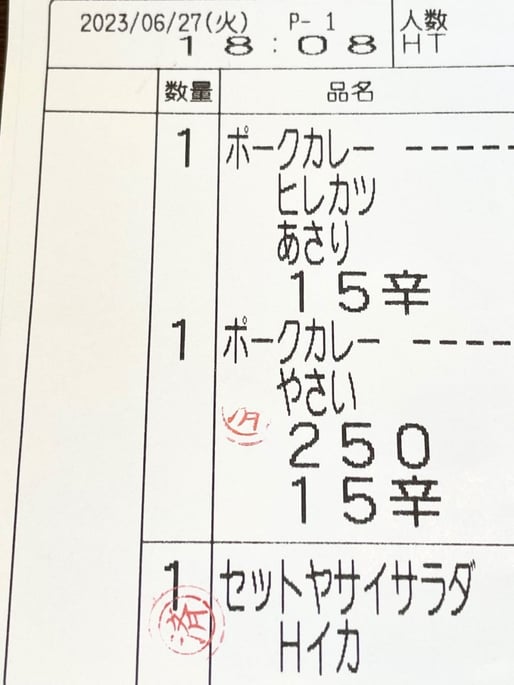 2023/06/27(火) P- 1 人数
18:08 HT
数量 品名
1 ポークカレー -----
ヒレカツ
あさり
15辛
1 ポークカレー -----
やさい
250
15辛
1 セットヤサイサラダ
済
Hイカ